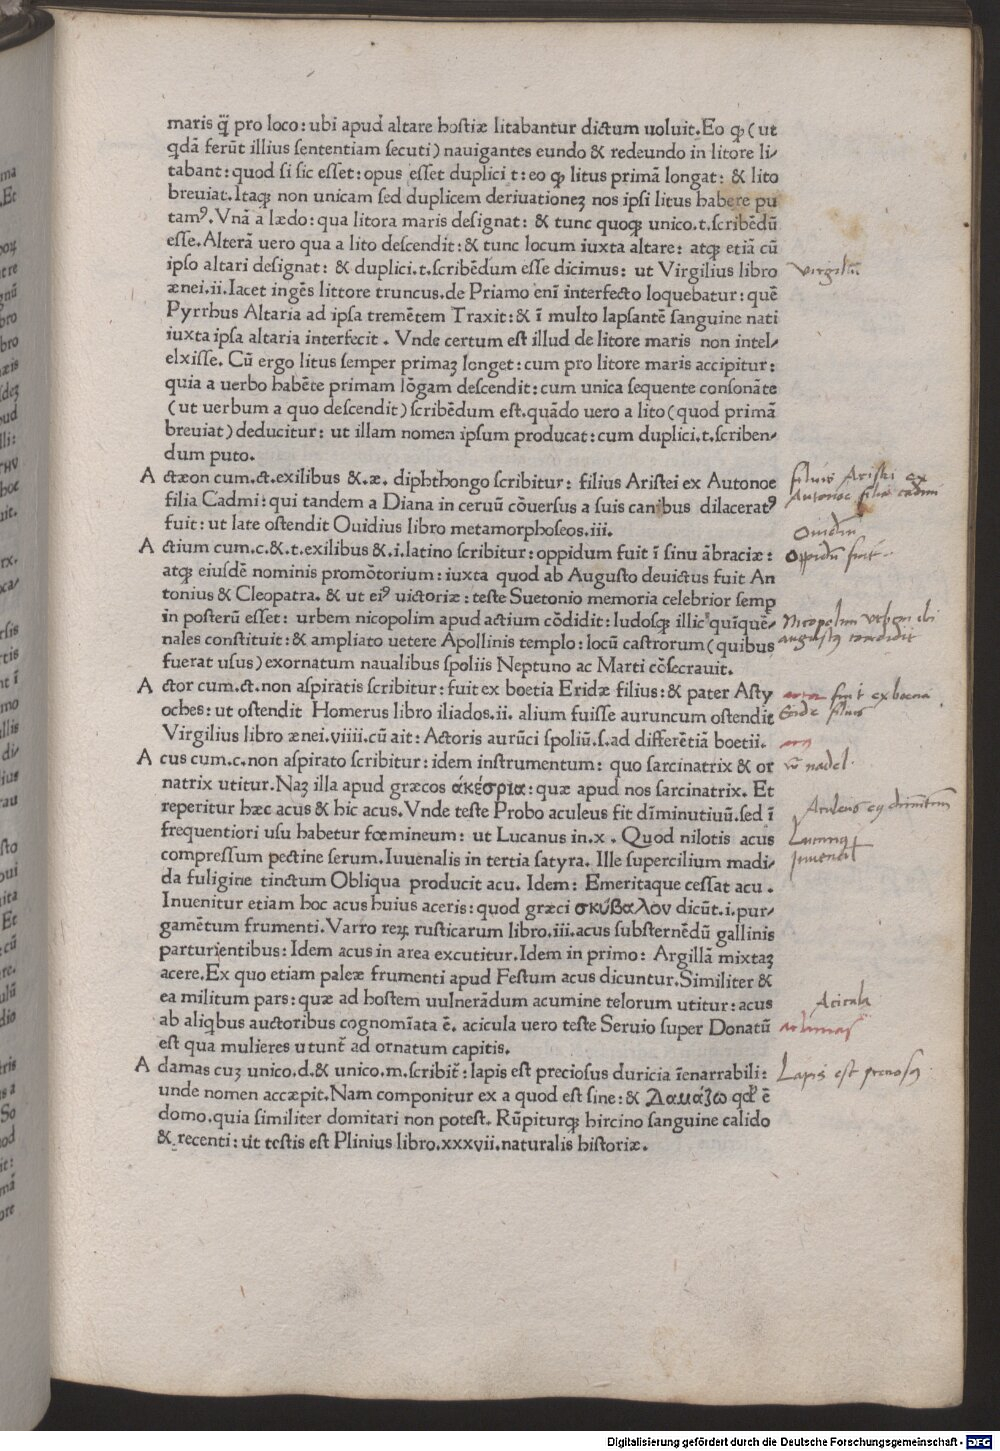 maris q̄ pro loco: ubi apud altare hostiæ litabantur dictum uoluit. Eo ꝙ (ut
qdā ferūt illius sententiam secuti) nauigantes eundo & redeundo in litore li/
tabant: quod si sic esset: opus esset duplici t: eo ꝙ litus primā longat: & lito
breuiat. Itaqꝫ non unicam sed duplicem deriuationeꝫ nos ipsi litus habere pu
tamꝰ. Vnā a lædo: qua litora maris designat: & tunc quoqꝫ unico.t.scribēdū
esse. Alterā uero qua a lito descendit: & tunc locum iuxta altare: atqꝫ etiā cū
ipso altari designat: & duplici.t.scribēdum esse dicimus: ut Virgilius libro
ænei.ii. Iacet ingēs littore truncus. de Priamo enī interfecto loquebatur: quē
Pyrrhus Altaria ad ipsa tremētem Traxit: & ī multo lapsantē sanguine nati
iuxta ipsa altaria interfecit. Vnde certum est illud de litore maris non intel-
elxisse. Cū ergo litus semper primaꝫ longet: cum pro litore maris accipitur:
quia a uerbo habēte primam lōgam descendit: cum unica sequente consonāte
(ut uerbum a quo descendit) scribēdum est. quādo uero a lito (quod primā
breuiat) deducitur: ut illam nomen ipsum producat: cum duplici.t.scriben/
dum puto.
A ctæon cum.ct.exilibus &.æ. diphthongo scribitur: filius Aristei ex Autonoe
filia Cadmi: qui tandem a Diana in ceruū cōuersus a suis canibus dilaceratꝰ
fuit: ut late ostendit Ouidius libro metamorphoseos.iii.
A ctium cum.c.&.t.exilibus &.i.latino scribitur: oppidum fuit ī sinu ābraciæ:
atqꝫ eiusdē nominis promōtorium: iuxta quod ab Augusto deuictus fuit An
tonius & Cleopatra. & ut eiꝰ uictoriæ: teste Suetonio memoria celebrior semp
in posterū esset: urbem nicopolim apud actium cōdidit: ludosqꝫ illic quīquē/
nales constituit: & ampliato uetere Apollinis templo: locū castrorum (quibus
fuerat usus) exornatum naualibus spoliis Neptuno ac Marti cōsecrauit.
A ctor cum.ct.non aspiratis scribitur: fuit ex boetia Eridæ filius: & pater Asty
oches: ut ostendit Homerus libro iliados.ii. alium fuisse auruncum ostendit
Virgilius libro ænei.viiii. cū ait: Actoris aurūci spoliū.s.ad differētiā boetii.
A cus cum.c.non aspirato scribitur: idem instrumentum: quo sarcinatrix & or
natrix utitur. Naꝫ illa apud græcos ἀκέσρια: quæ apud nos sarcinatrix. Et
reperitur hæc acus & hic acus. Vnde teste Probo aculeus fit dīminutiuū. sed ī
frequentiori usu habetur fœmineum: ut Lucanus in.x. Quod nilotis acus
compressum pectine serum. Iuuenalis in tertia satyra. Ille supercilium madi/
da fuligine tinctum Obliqua producit acu. Idem: Emeritaque cessat acu.
Inuenitur etiam hoc acus huius aceris: quod græci σκύβαλον dicūt.i.pur/
gamētum frumenti. Varro reꝝ rusticarum libro.iii.acus substernēdū gallinis
parturientibus: Idem acus in area excutitur. Idem in primo: Argillā mixtaꝫ
acere. Ex quo etiam paleæ frumenti apud Festum acus dicuntur. Similiter &
ea militum pars: quæ ad hostem uulnerādum acumine telorum utitur: acus
ab aliqbus auctoribus cognomīata ē. acicula uero teste Seruio super Donatū
est qua mulieres utunt̄ ad ornatum capitis.
A damas cuꝫ unico.d.& unico.m.scribit̄: lapis est preciosus duricia īenarrabili:
unde nomen accæpit. Nam componitur ex a quod est sine: & Δαμάζω qd' ē
domo. quia similiter domitari non potest. Rūpiturqꝫ hircino sanguine calido
& recenti: ut testis est Plinius libro.xxxvii.naturalis historiæ.
Virgiliū
filius Aristei ex
Autonoe filia cadmi
Ouidiū
Oppidū fuit
Nicopolim urbem ubi
augustus condidit
actor fuit ex boecia
Eride filius
acus
nadel
Aculeus
Lucanus
Juuenal
Acicula
adamas
Lapis est preciosus
Digitalisierung gefördert durch die Deutsche Forschungsgemeinschaft - DFG